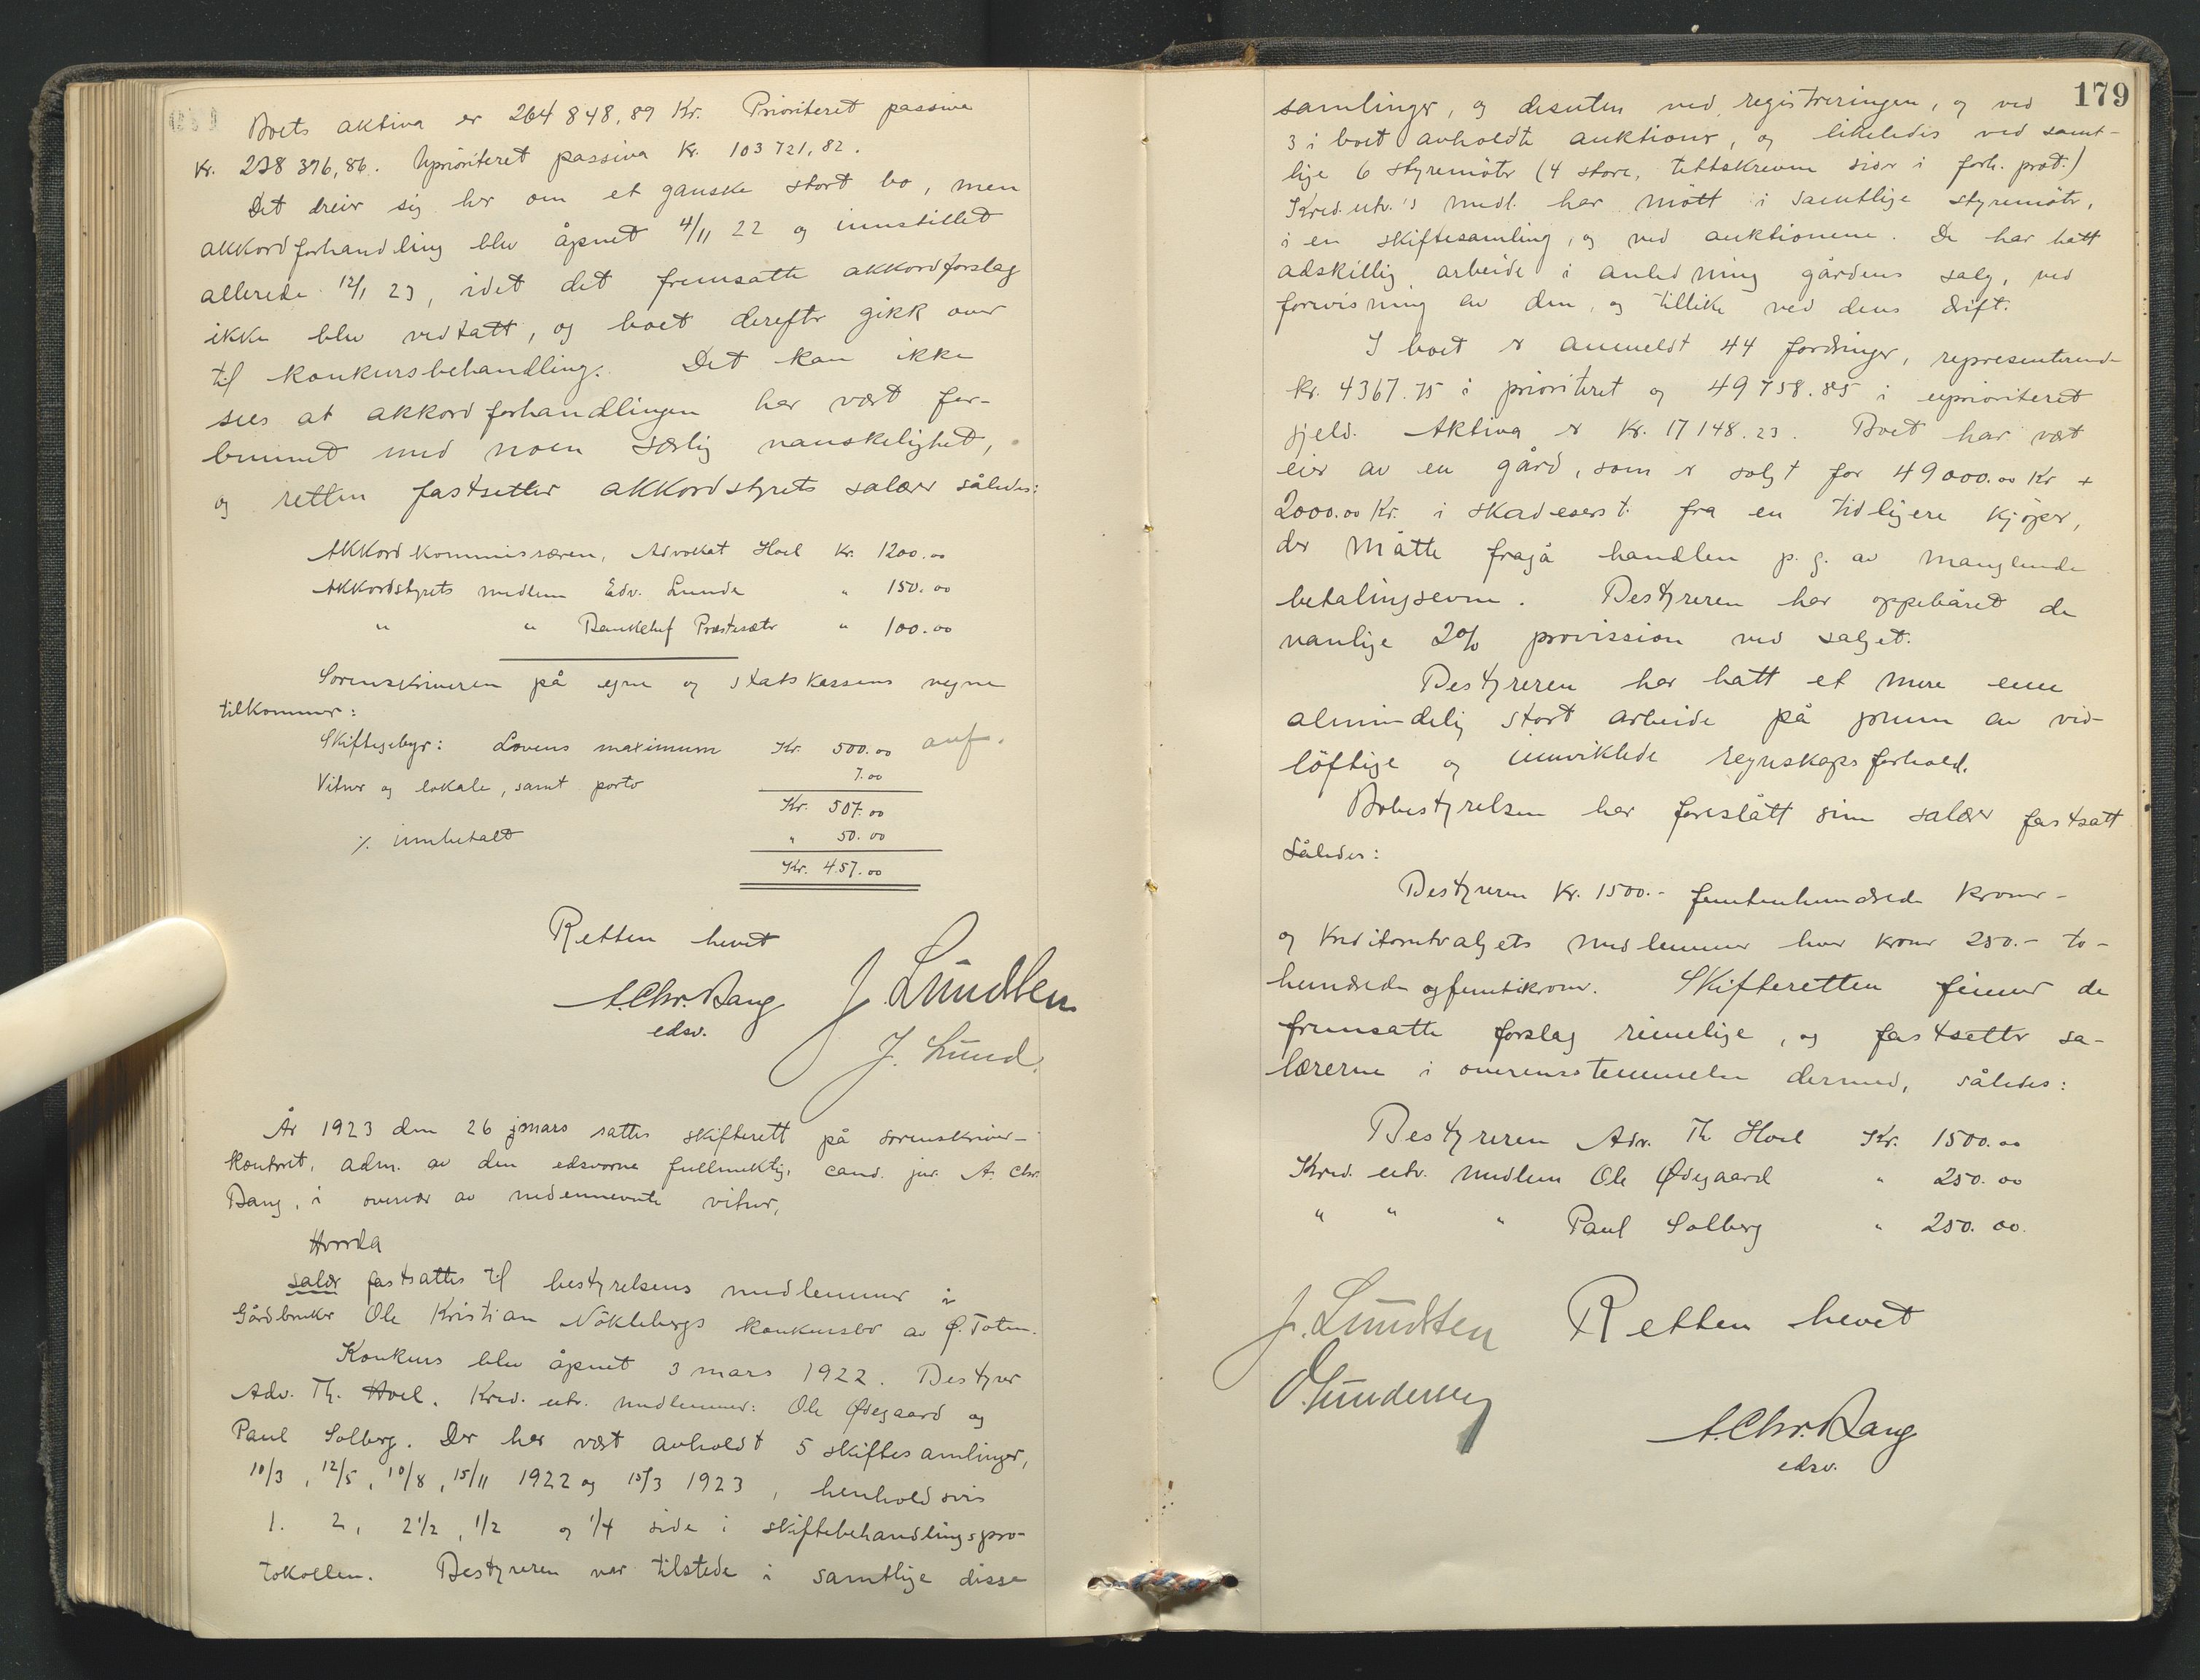 Boets aktiva er 264 848,89 Kr. Prioritert passiva
Kr. 238 376,86. Uprioriteret passiva Kr. 103 721,82.
Det dreier sig her om et ganske stort bo, men
akkordforhandling blev åpnet 4/11 22 og innstillet
allerede 12/1 23, idet det fremsatte akkordforslag
ikke blev vedtatt, og boet derefter gikk over
til konkursbehandling. Det kan ikke
sies at akkordforhandlingen har vært for-
bunnet med noen særlig vanskelighet,
og retten fastsetter akkordstyrets salærer således:
Akkordkommissæren, Advokat Hoel Kr. 1200.00
Akkordstyrets medlem Edv. Lunde " 150.00
" " Bankchef Præstesæter " 100.00
Sorenskriveren på egne og statskassens vegne
tilkommer:
Skiftegebyr: Lovens maximum Kr. 500.00 anf.
Vitner og lokale, samt porto 7.00
Kr. 507.00
./. innbetalt " 50.00
Kr. 457.00
Retten hevet
A.Chr.Bang J. Lundsten
edsv.
J. Lund.
År 1923 den 26 mars sattes skifterett på sorenskriver-
kontoret, adm. av den edsvorne fullmektig, cand. jur. A. Chr.
Bang, i overvær av nedennevnte vitner,
Hvorda
salær fastsattes til bestyrelsens medlemmer i
Gårdbruker Ole Kristian Nöklebergs konkursbo av Ø. Toten.
Konkurs blev åpnet 3 mars 1922. Bestyrer
Adv. Th. Hoel. Kred. utv. medlemmer: Ole Ødegaard og
Paul Solberg. Der har vært avholdt 5 skiftesamlinger,
10/3, 12/5, 10/8, 15/11 1922 og 15/3 1923, henholdsvis
1. 2, 2 1/2, 1/2 og 1/4 side i skiftebehandlingspro-
tokollen. Bestyreren var tilstede i samtlige disse
179
samlinger, og desuten ved registreringen, og ved
3 i boet avholdte auktioner, og likeledes ved samt-
lige 6 styremöter (4 store, tettskrevne sider i forh. prot.)
Kred.utv.'s medl. har mött i samtlige styremöter,
i en skiftesamling, og ved auktionene. De har hatt
adskillig arbeide i anledning gårdens salg, ved
forevisning av den, og tillike ved dens drift.
I boet er anmeldt 44 fordringer, representerende
kr. 4367.75 i prioriteret og 49758.85 i uprioriteret
gjeld. Aktiva er Kr. 17148.23. Boet har vært
eier av en gård, som er solgt for 49000.00 Kr +
2000.00 Kr. i skadeserst. fra en tidligere kjöper,
der måtte fragå handlen p. g. av manglende
betalingsevne. Bestyreren har oppebåret de
vanlige 2% provission ved salget.
Bestyreren har hatt et mere enn
almindelig stort arbeide på grunn av vid-
löftige og innviklede regnskapsforhold.
Bobestyrelsen har foreslått sine salærer fastsatt
således:
Bestyreren Kr. 1500.- femtenhundrede kroner -
og kreditorutvalgets medlemmer hver kroner 250.- to-
hundrede og femtikroner. Skifteretten finner de
fremsatte forslag rimelige, og fastsetter sa-
lærerne i overensstemmelse dermed, således:
Bestyreren Adv. Th Hoel Kr. 1500.00
Kred. utv. medlem Ole Ødegaard " 250.00
" " " Paul Solberg " 250.00.
J. Lundsten Retten hevet
O. Gundersen
A.Chr.Bang
edsv.